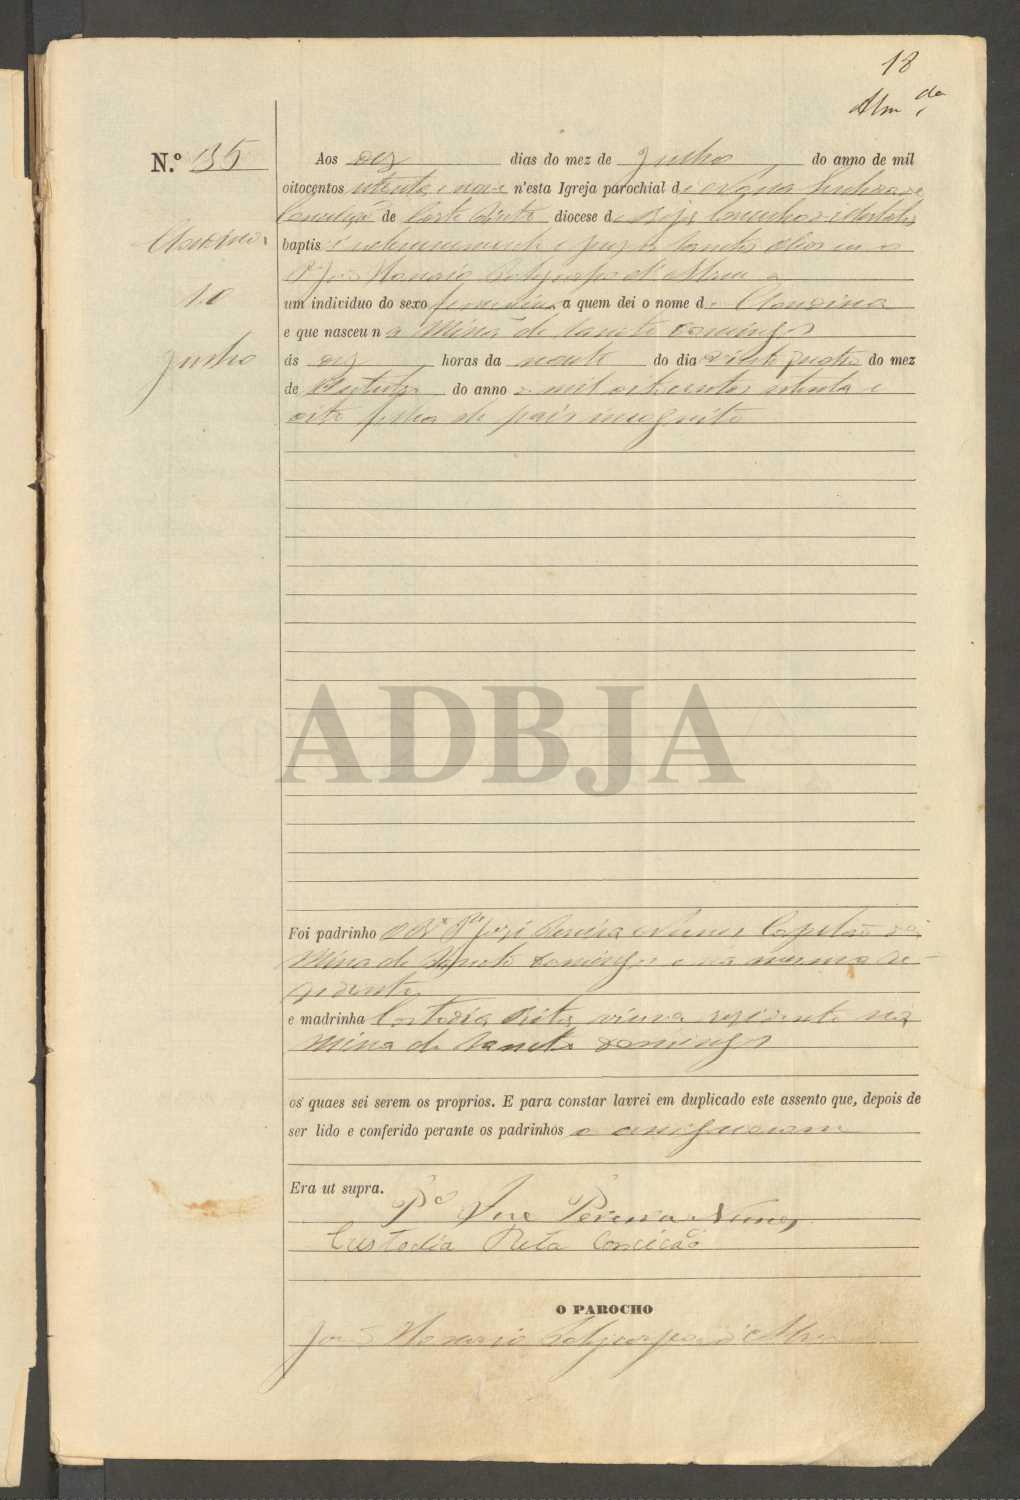 18
N.º 135
Aos dez dias do mez de Junho do anno de mil
oitocentos oitenta e nove n'esta Igreja parochial de Nossa Senhora da
Conceição de Corte do Pinto diocese de Beja Concelho de Mertola
baptis ei solemnemente e puz os Sanctos Oleos eu o
P.e José
um individuo do sexo femenino a quem dei o nome de
e que nasceu na Mina de Sancto Domingos
10
Junho
ás dez horas da noute do dia vinte quatro do mez
de do anno de mil oitocentos oitenta e
oito filha de pais incognitos
ADBJA
Foi padrinho P.e José Pereira Nunes Capelão da
Mina de Sancto Domingos e na mesma re-
sidente
e madrinha Custodia Rita, viuva residente na
Mina de Sancto Domingos
os quaes sei serem os proprios. E para constar lavrei em duplicado este assento que, depois de
ser lido e conferido perante os padrinhos o assignaram
Era ut supra.
P.e José Pereira Nunes
Custodia Rita Conceicão
O PAROCHO
José